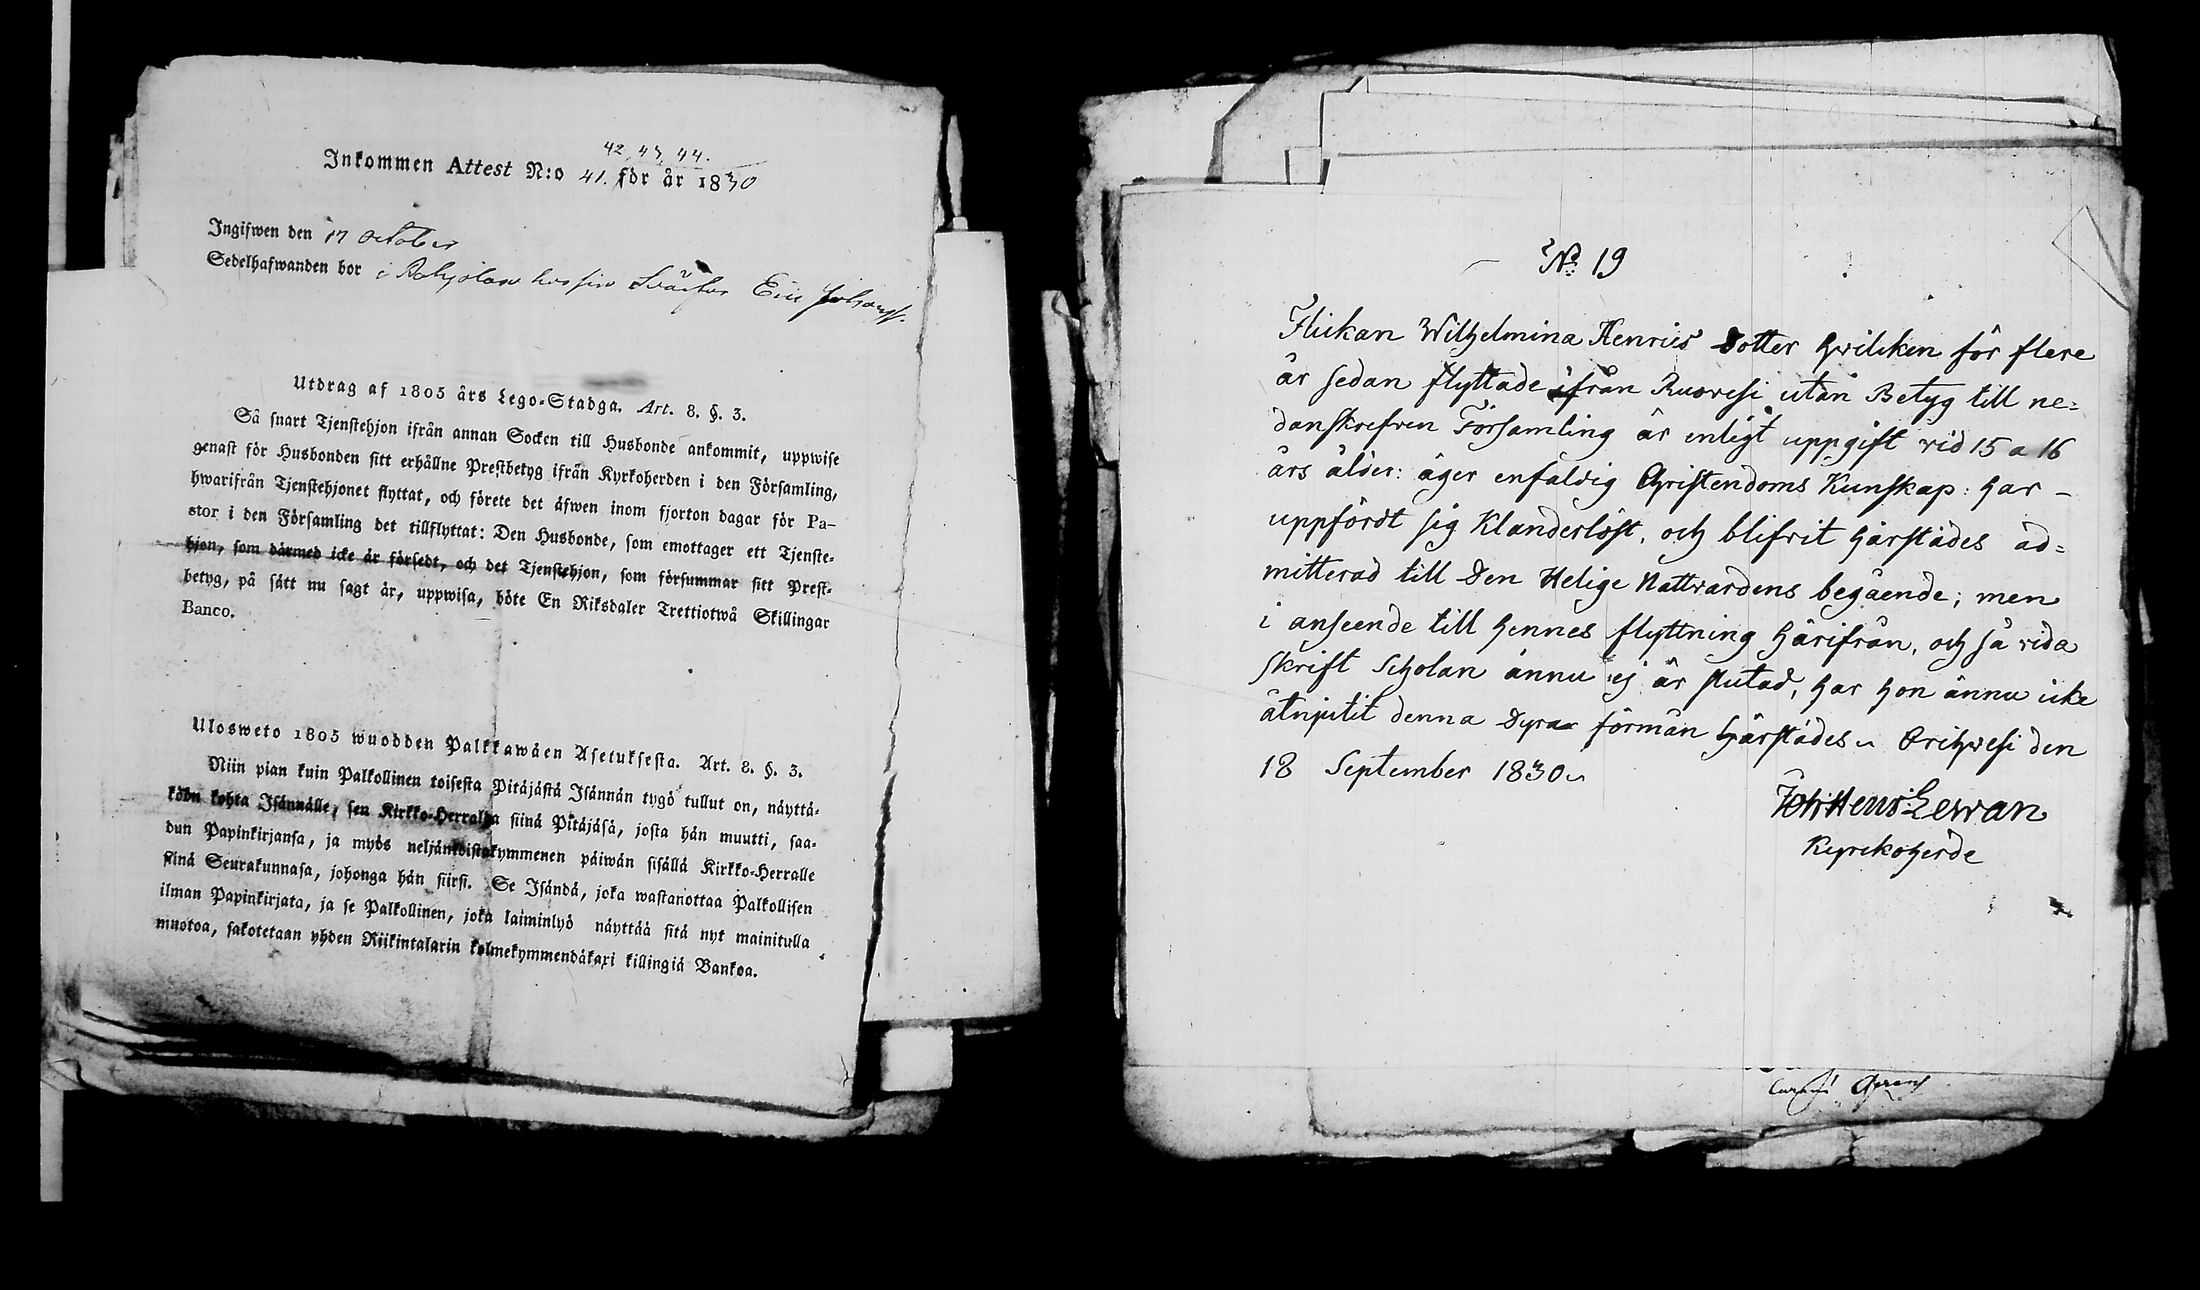 42, 43, 44.
Inkommen Attest N:o 41. för år 1830
Ingifwen den 17 October
Sedelhafwanden bor i Pohjolan hos sin Swåger Eric Johanss.
Utdrag af 1805 års Lego-Stadga. Art. 8. §. 3.
Så snart Tjenstehjon ifrån annan Socken till Husbonde ankommit, uppwise
genast för Husbonden sitt erhållne Prestbetyg ifrån Kyrkoherden i den Församling,
hwarifrån Tjenstehjonet flyttat, och förete det äfwen inom fjorton dagar för Pa-
stor i den Församling det tillflyttat: Den Husbonde, som emottager ett Tjenste-
hjon, som därmed icke är försedt, och det Tjenstehjon, som försummar sitt Prest-
betyg, på sätt nu sagt är, uppwisa, böte En Riksdaler Trettiotwå Skillingar
Banco.
Ulosweto 1805 wuodden Palkkawäen Asetuksesta. Art. 8. §. 3.
Niin pian kuin Palkollinen toisesta Pitäjästä Isännän tygö tullut on, näyttä-
köön kohta Isännälle, sen Kirkko-Herralda siinä Pitäjäsä, josta hän muutti, saa-
dun Papinkirjansa, ja myös neljäntoistakymmenen päiwän sisällä Kirkko-Herralle
siinä Seurakunnasa, johonga hän siirsi. Se Isändä, joka wastanottaa Palkollisen
ilman Papinkirjata, ja se Palkollinen, joka laiminlyö näyttää sitä nyt mainitulla
muotoa, sakotetaan yhden Riikintalarin kolmekymmendäkaxi killingiä Bankoa.
No 19
Flickan Wilhelmina Henrics Dotter hvilcken för flere
år sedan flyttade ifrån Ruovesi utan Betyg till ne=
danskrefven Församling är enligt uppgift vid 15 a 16
års ålder: äger enfaldig Christendoms Kunskap: har -
uppfördt sig Klanderlöst, och blifvit härstädes ad=
mitterad till Den Helige Nattvardens begående; men
i anseende till hennes flyttning härifrån, och så vida
skrift Scholan ännu ej är slutad, har hon ännu icke
åtnjutit denna Dyra förmån härstädes. Orihvesi den
18 September 1830.
Joh Henr Lewan
Kyrckoherde